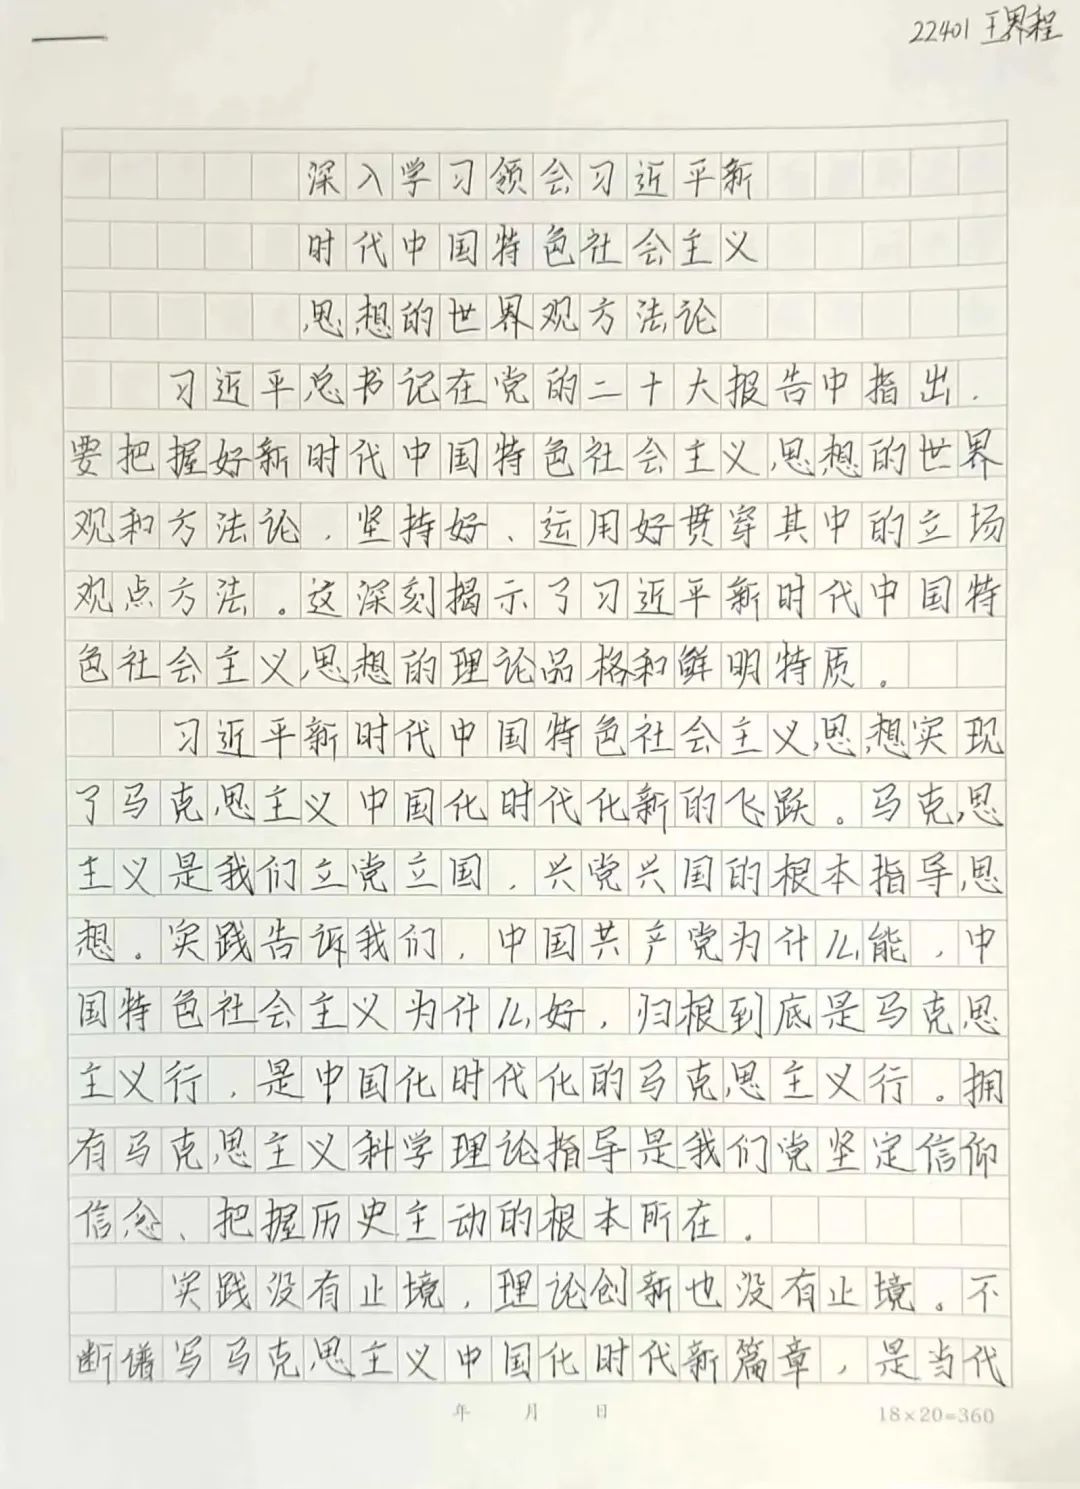 22401 王界程
深入学习领会习近平新
时代中国特色社会主义
思想的世界观方法论
习近平总书记在党的二十大报告中指出，
要把握好新时代中国特色社会主义思想的世界
观和方法论，坚持好、运用好贯穿其中的立场
观点方法。这深刻揭示了习近平新时代中国特
色社会主义思想的理论品格和鲜明特质。
习近平新时代中国特色社会主义思想实现
了马克思主义中国化时代化新的飞跃。马克思
主义是我们立党立国，兴党兴国的根本指导思
想。实践告诉我们，中国共产党为什么能，中
国特色社会主义为什么好，归根到底是马克思
主义行，是中国化时代化的马克思主义行。拥
有马克思主义科学理论指导是我们党坚定信仰
信念、把握历史主动的根本所在。
实践没有止境，理论创新也没有止境。不
断谱写马克思主义中国化时代新篇章，是当代
年 月 日
18×20=360